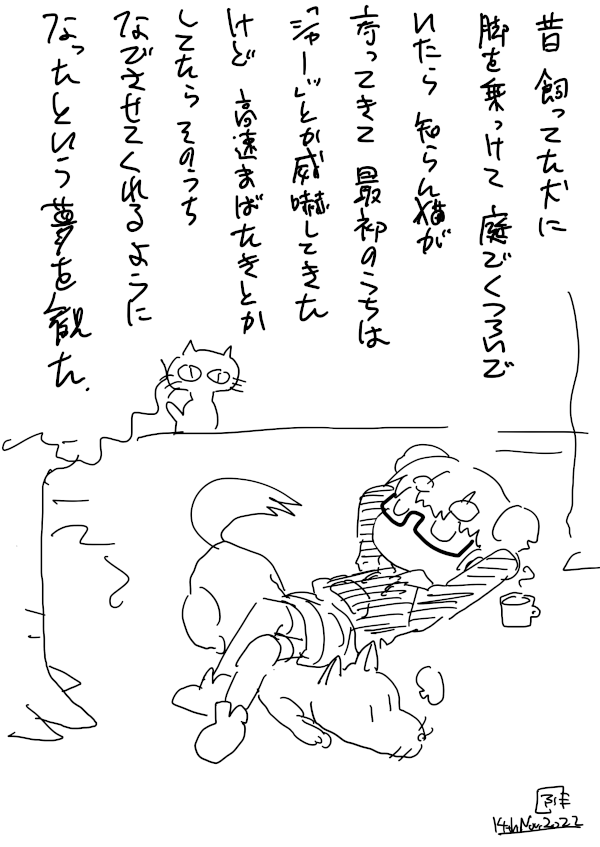 昔 飼ってた犬に
脚を乗っけて 庭でくつろいで
いたら 知らん猫が
寄ってきて 最初のうちは
「シャーッ」とか威嚇してきた
けど 高速まばたきとか
してたら そのうち
なでさせてくれるように
なったという夢を観た.
14th Nov. 2022